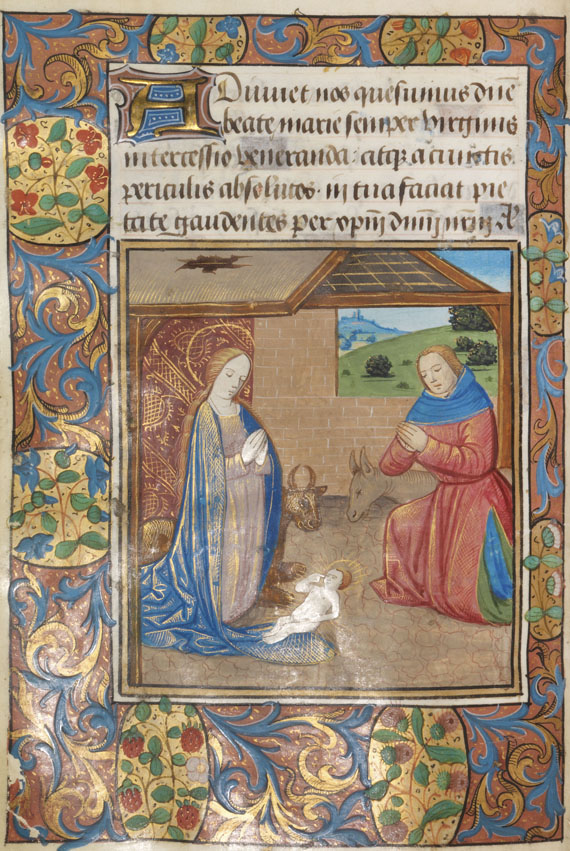 Adiuuet nos quesumus dn̄e
beate marie semper virginis
intercessio veneranda: atq̄ a cunctis
periculis absolutos. in tua faciat pie
tate gaudentes per xp̄m dn̄m nr̄m A